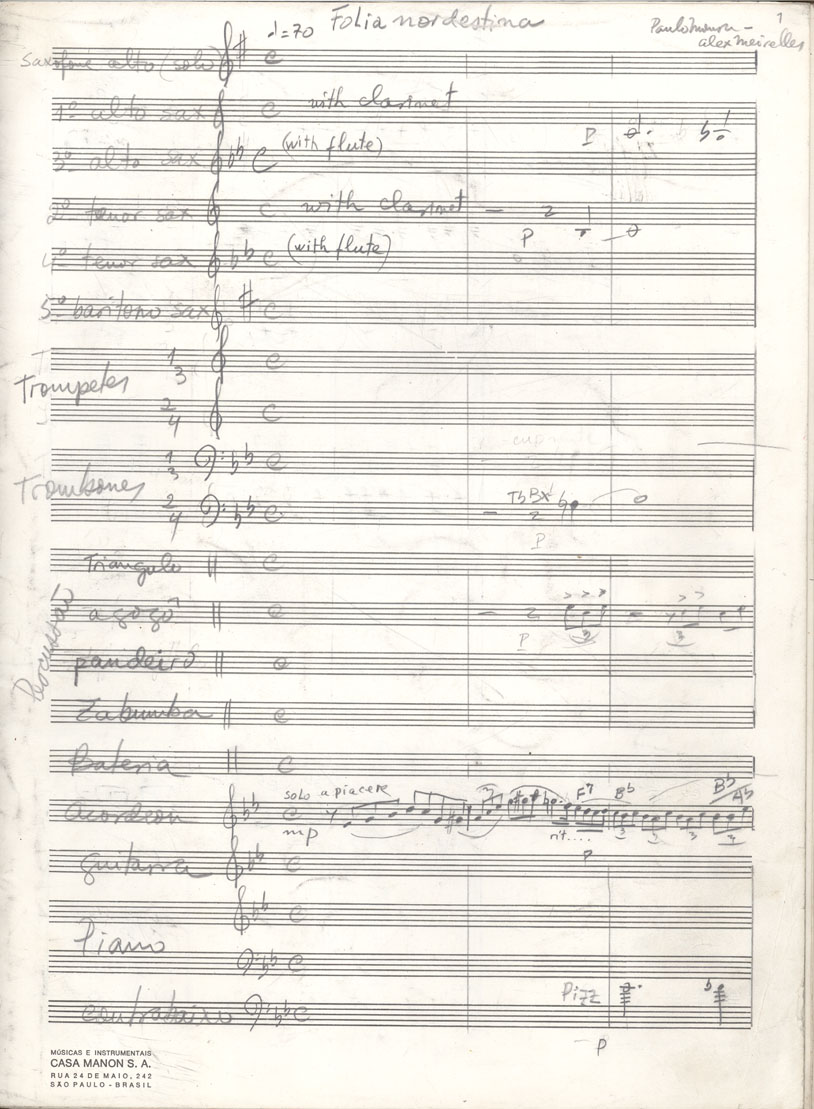 ♩=70 Folia nordestina
1
Paulo Moura -
Alex Meirelles
Saxofone alto (solo)
1º alto sax with clarinet
p
3º alto sax (with flute)
2º tenor sax with clarinet
p
4º tenor sax (with flute)
5º baritono sax
Trompetes
1
3
2
4
Trombones
1
3
2
4
Tb Bx
p
Percussão
Triangulo
agogô
p
3 3
pandeiro
Zabumba
Bateria
acordeon solo a piacere
mp
3
rit....
F7 Bb Bb Ab
3 3 3 3
guitarra
p
Piano
contrabaixo Pizz
p
MÚSICAS E INSTRUMENTAIS
CASA MANON S. A.
RUA 24 DE MAIO, 242
SÃO PAULO - BRASIL